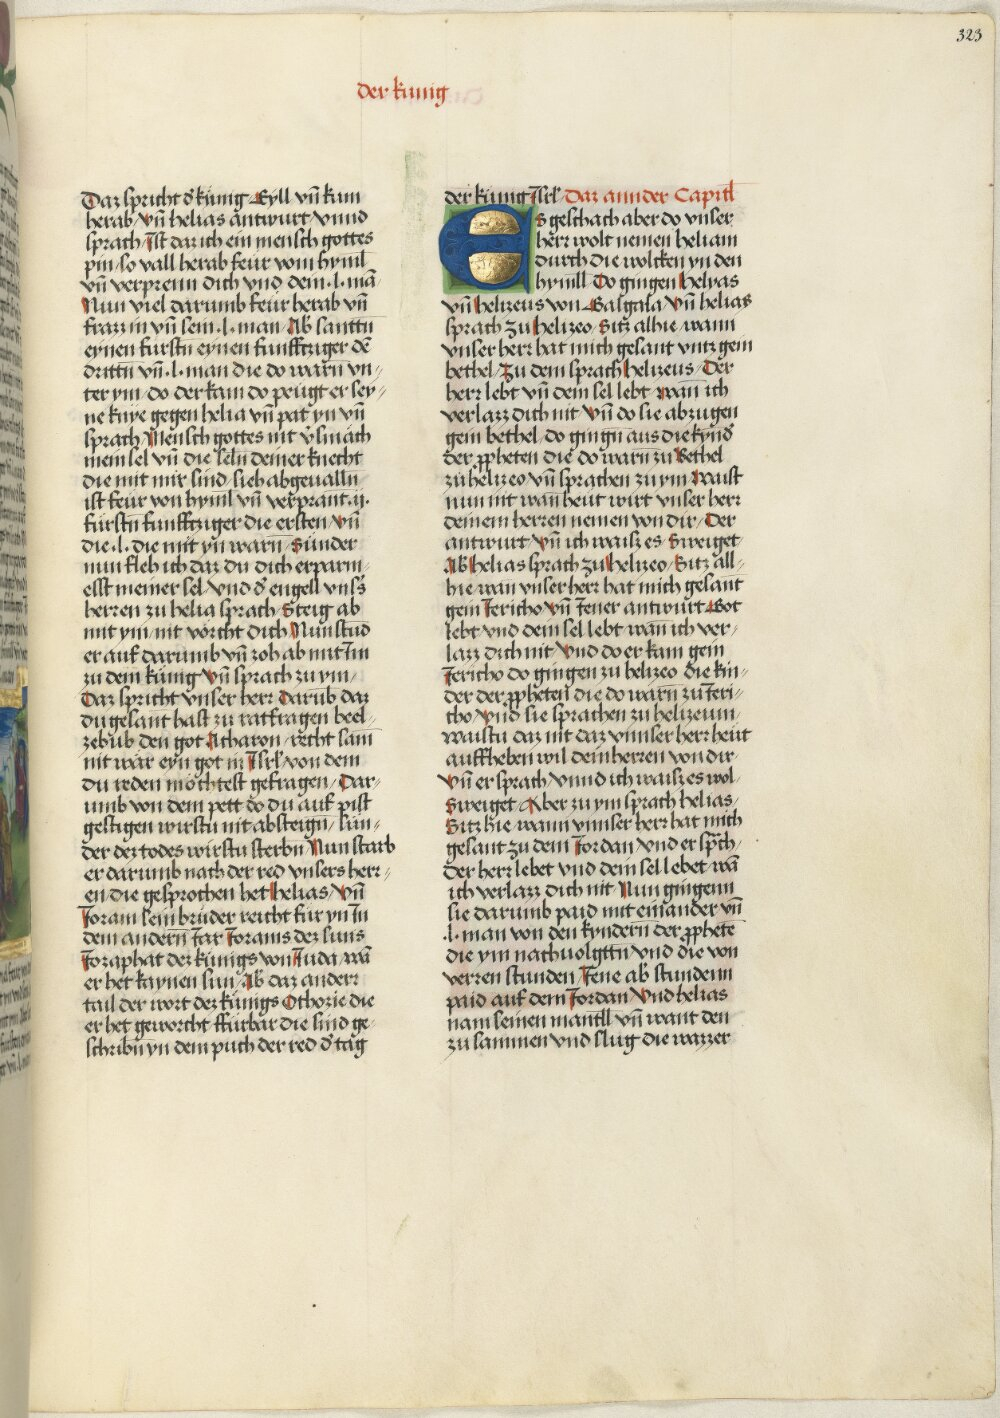 323
der kunig
Daz spricht d͛ kunig Eyll vn̄ kum
herab Vn̄ helias antwurt vnnd
sprach Ist daz ich ein mensch gottes
pin so vall herab feur vom hyml̄
vn̄ verprenn dich vnd dein .l. mā
Nun viel darumb feur herab vn̄
frazz in vn̄ sein .l. man Ab santtn̄
eynen furstn̄ eynen funfftziger dē
drittn̄ vn̄ .l. man die do warn̄ vn-
ter ym do der kam do peugt er sey-
ne knye gegen helia vn̄ pat yn vn̄
sprach Mensch gottes nit v͛smach
mein sel vn̄ die seln̄ deiner knecht
die mit mir sind sieh abgevalln̄
ist feur von hyml̄ vn̄ verprant .ij.
furstn̄ funfftziger die ersten vn̄
die .l. die mit yn warn̄ Sunder
nun fleh ich daz du dich erparm-
est meiner sel vnd d͛ engell vns͛s
herren zu helia sprach Steig ab
mit ym nit vorcht dich Nun stūd
er auf darumb vn̄ zoh ab mit Im
zu dem kunig Vn̄ sprach zu ym
Daz spricht vnser herr Darūb daz
du gesant hast zu ratfragen beel-
zebub den got Acharon recht sam̄
nit wär eyn got in Isrl̄ von dem
du reden möchtest gefragen Dar-
umb von dem pett do du auf pist
gestigen wirstu nit absteign̄ sun-
der dez todes wirstu sterbn̄ Nun starb
er darumb nach der red vnsers herr-
en die gesprochen het helias Vn̄
Joram sein bruder reicht fur yn In
dem andern̄ Jar Jorams dez suns
Josaphat dez kunigs von Juda wā
er het kaynen sun Ab daz ander
tail der wort dez kunigs Othozie die
er het geworcht ffurbar die sind ge-
schribn̄ yn dem puch der red d͛ tag
der kunig Isrl̄ Daz annder Capitl̄
Es geschach aber do vnser
herr wolt nemen heliam
durch die wolcken yn den
hymll Do gingen helyas
vn̄ helizeus von Galgala Vn̄ helias
sprach zu helizeo Sitz alhie wann
vnser herr hat mich gesant vntz gein
bethel Zu dem sprach helizeus Der
herr lebt vn̄ dein sel lebt wan̄ ich
verlazz dich nit Vn̄ do sie abzugen
gein bethel do gingn̄ aus die kynd͛
der p̲pheten die do warn zu Bethel
zu helizeo vn̄ sprachen zu ym Waist
nun nit wan̄ heut wirt vnser herr
deinem herren nemen von dir Der
antwurt Vn̄ ich waisz es Sweiget
Ab helias sprach zu helizeo Sitz all-
hie wan vnser herr hat mich gesant
gein Jericho Vn̄ Jener antwurt Got
lebt vnd dein sel lebt wan̄ ich ver-
lazz dich nit Vnd do er kam gein
Jericho do gingen zu helizeo die kin-
der der p̲pheten̄ die do warn̄ zu Jeri-
cho Vnd sie sprachen zu helizeum
waistu daz nit daz vnnser herr heut
auffheben wil dein herren von dir
Vn̄ er sprach vnnd ich waisz es wol
Sweiget Aber zu ym sprach helias
Sitz hie wann vnnser herr hat mich
gesant zu dem Jordan vnd er sprͨh
der herr lebet vnd dein sel lebet wā
ich verlazz dich nit Nun gingenn
sie darumb paid mit einander vn̄
.l. man von den kyndern̄ der p̲phetē
die ym nachuolgttn̄ vnd die von
verren stunden Jene ab stundenn
paid auf dem Jordan Vnd helias
nam seinen mantll vn̄ want den
zu sammen vnd slug die wazzer